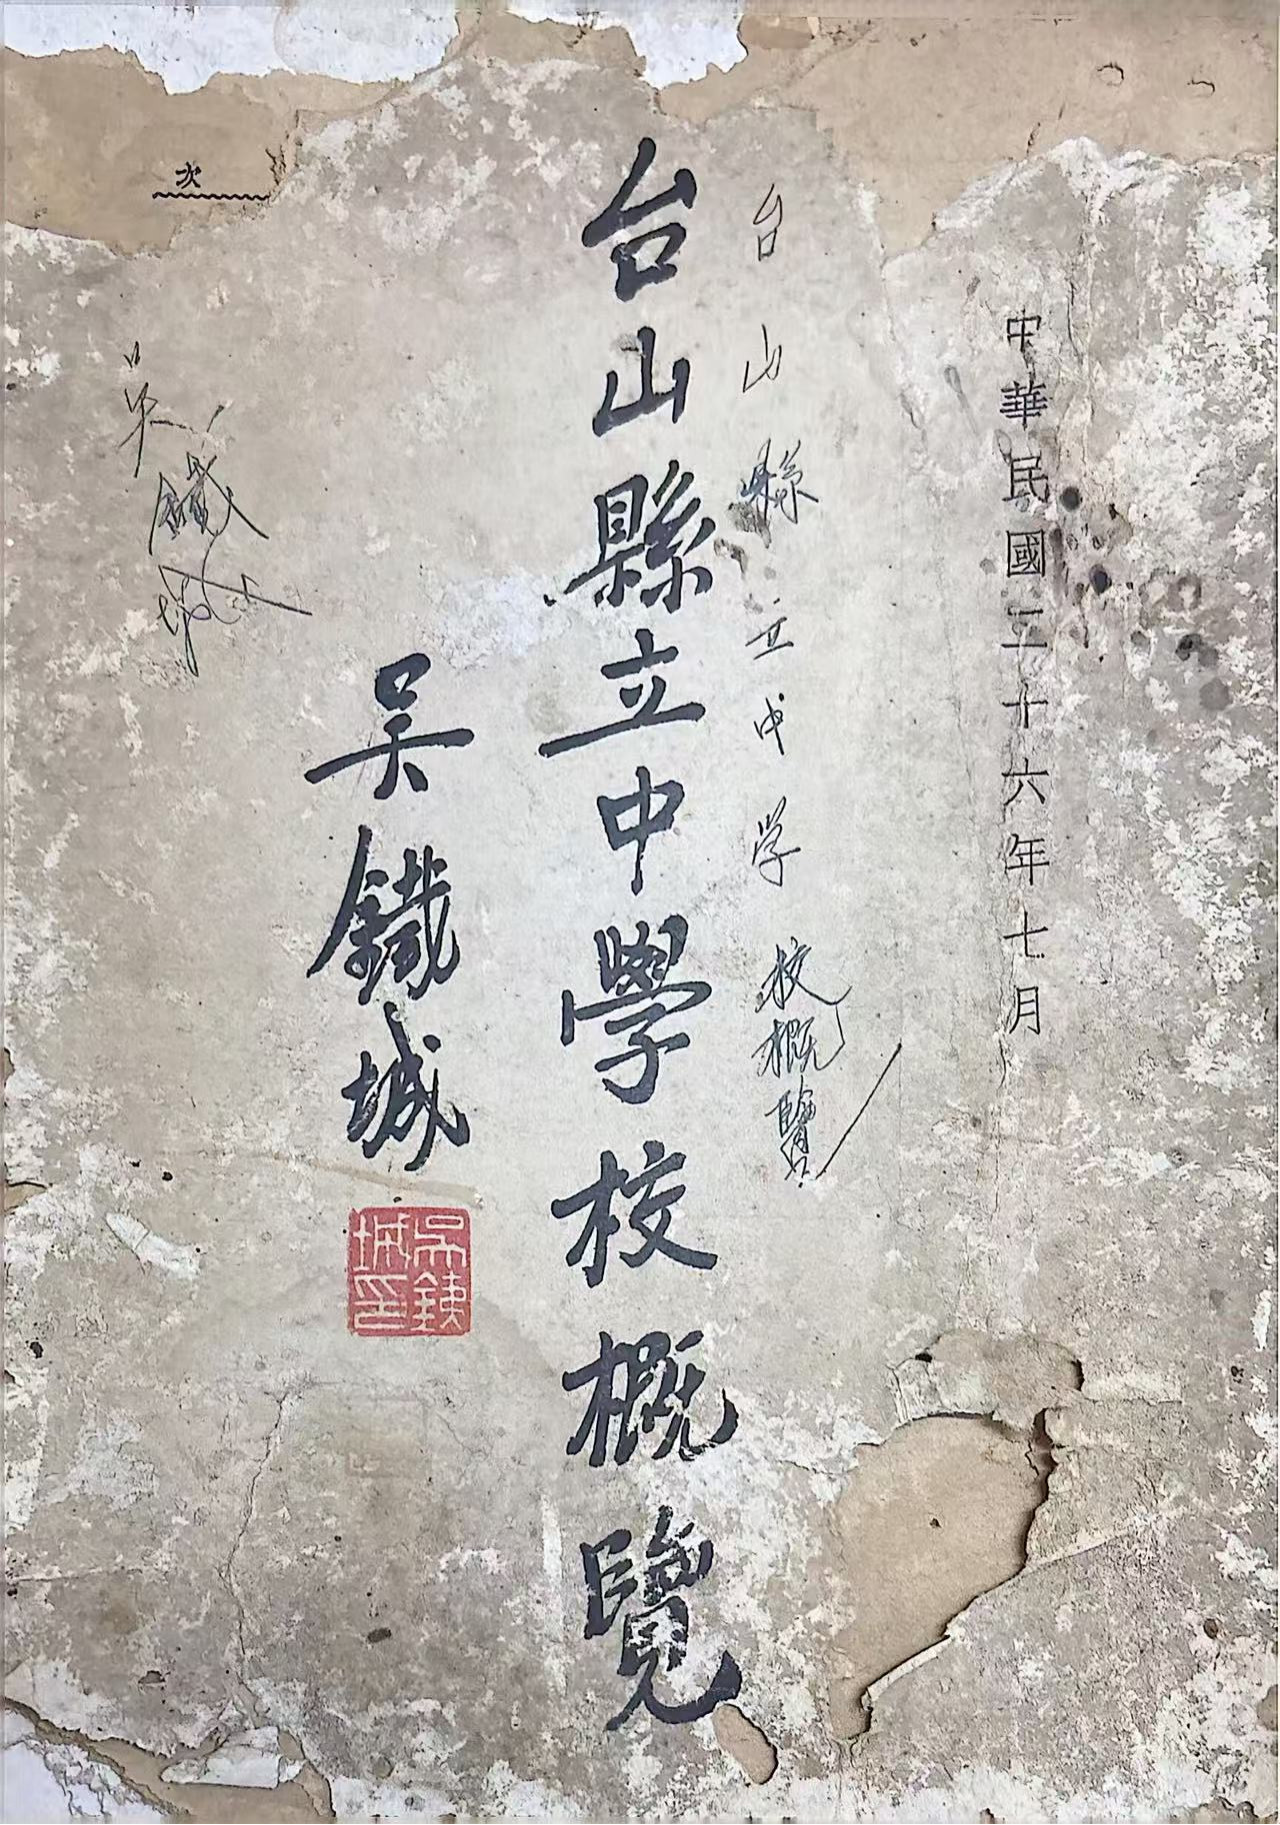 中華民國二十六年七月
台山縣立中学校概覽
台山縣立中學校概覽
吳鐵城
吳銕城印
吳鐵城
次